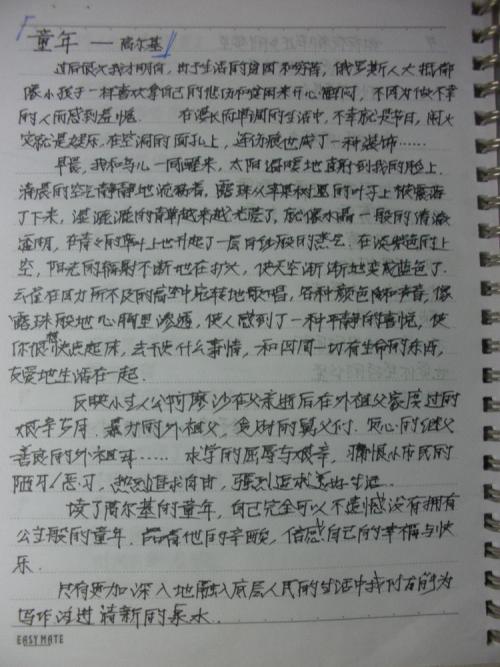 「童年 — 高尔基」
过后很久我才明白，由于生活的贫困和穷苦，俄罗斯人大抵都
像小孩子一样喜欢拿自己的忧伤和贫困来开心解闷，不因为做不幸
的人而感到羞愧。 在漫长的单调的生活中，不幸就是节日，闹火
灾就是娱乐，在空洞的面孔上，连伤痕也成了一种装饰……
早晨，我和鸟儿一同醒来，太阳温暖地直射到我的脸上．
清晨的空气静静地流荡着，露珠从苹果树里的叶子上
了下来，湿漉漉的青草越来越光亮了，就像水晶一般的清澈
透明，在青草的上也升起了一层般的蒸气．在淡紫色的上
空，阳光的辐射不断地在扩大，使天空渐渐地变成蓝色了．
云雀在目力所不及的高空中宛转地歌唱，各种颜色和声音，像
露珠般地心胸里渗透，使人感到了一种平静的喜悦，使
你很快点起床，去干些什么事情，和四周一切有生命的东西，
友爱地生活在一起．
反映小主人公阿廖沙在父亲逝后在外祖父家度过的
艰辛岁月．暴力的外祖父，贪财的舅父们．的继父
善良的外祖母…… 求学的屈辱与艰辛，痛恨小市民的
陋习恶习，热烈追求自由，强烈追求美好生活．
读了高尔基的童年，自己完全可以不遗憾没有拥有
公主般的童年．品尝他的辛酸，倍感自己的幸福与快
乐．
只有更加深入地融入底层人民的生活中我们才能为
写作注进清新的泉水．
EASY MATE